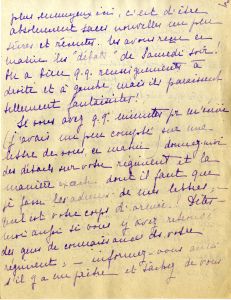 plus ennuyeux ici, c'est d'être
absolument sans nouvelles un peu
sûres et récentes. Nous avons reçu ce
matin les "débats" de Samedi soir!
On a bien q.q. renseignements à
droite et à gauche, mais ils paraissent
tellement fantaisistes!
Si vous avez q.q. minutes pr m'écrire
(j'avais un peu compté sur une
lettre de vous, ce matin) donnez-moi
des détails sur votre régiment et la
manière exacte dont il faut que
je fasse les adresses de mes lettres,
quel est votre corps d'armée? Dites-
moi aussi si vous y avez retrouvé
des gens de connaissance ds votre
régiment; – informez-vous aussi
s'il y a un prêtre et tâchez de vous